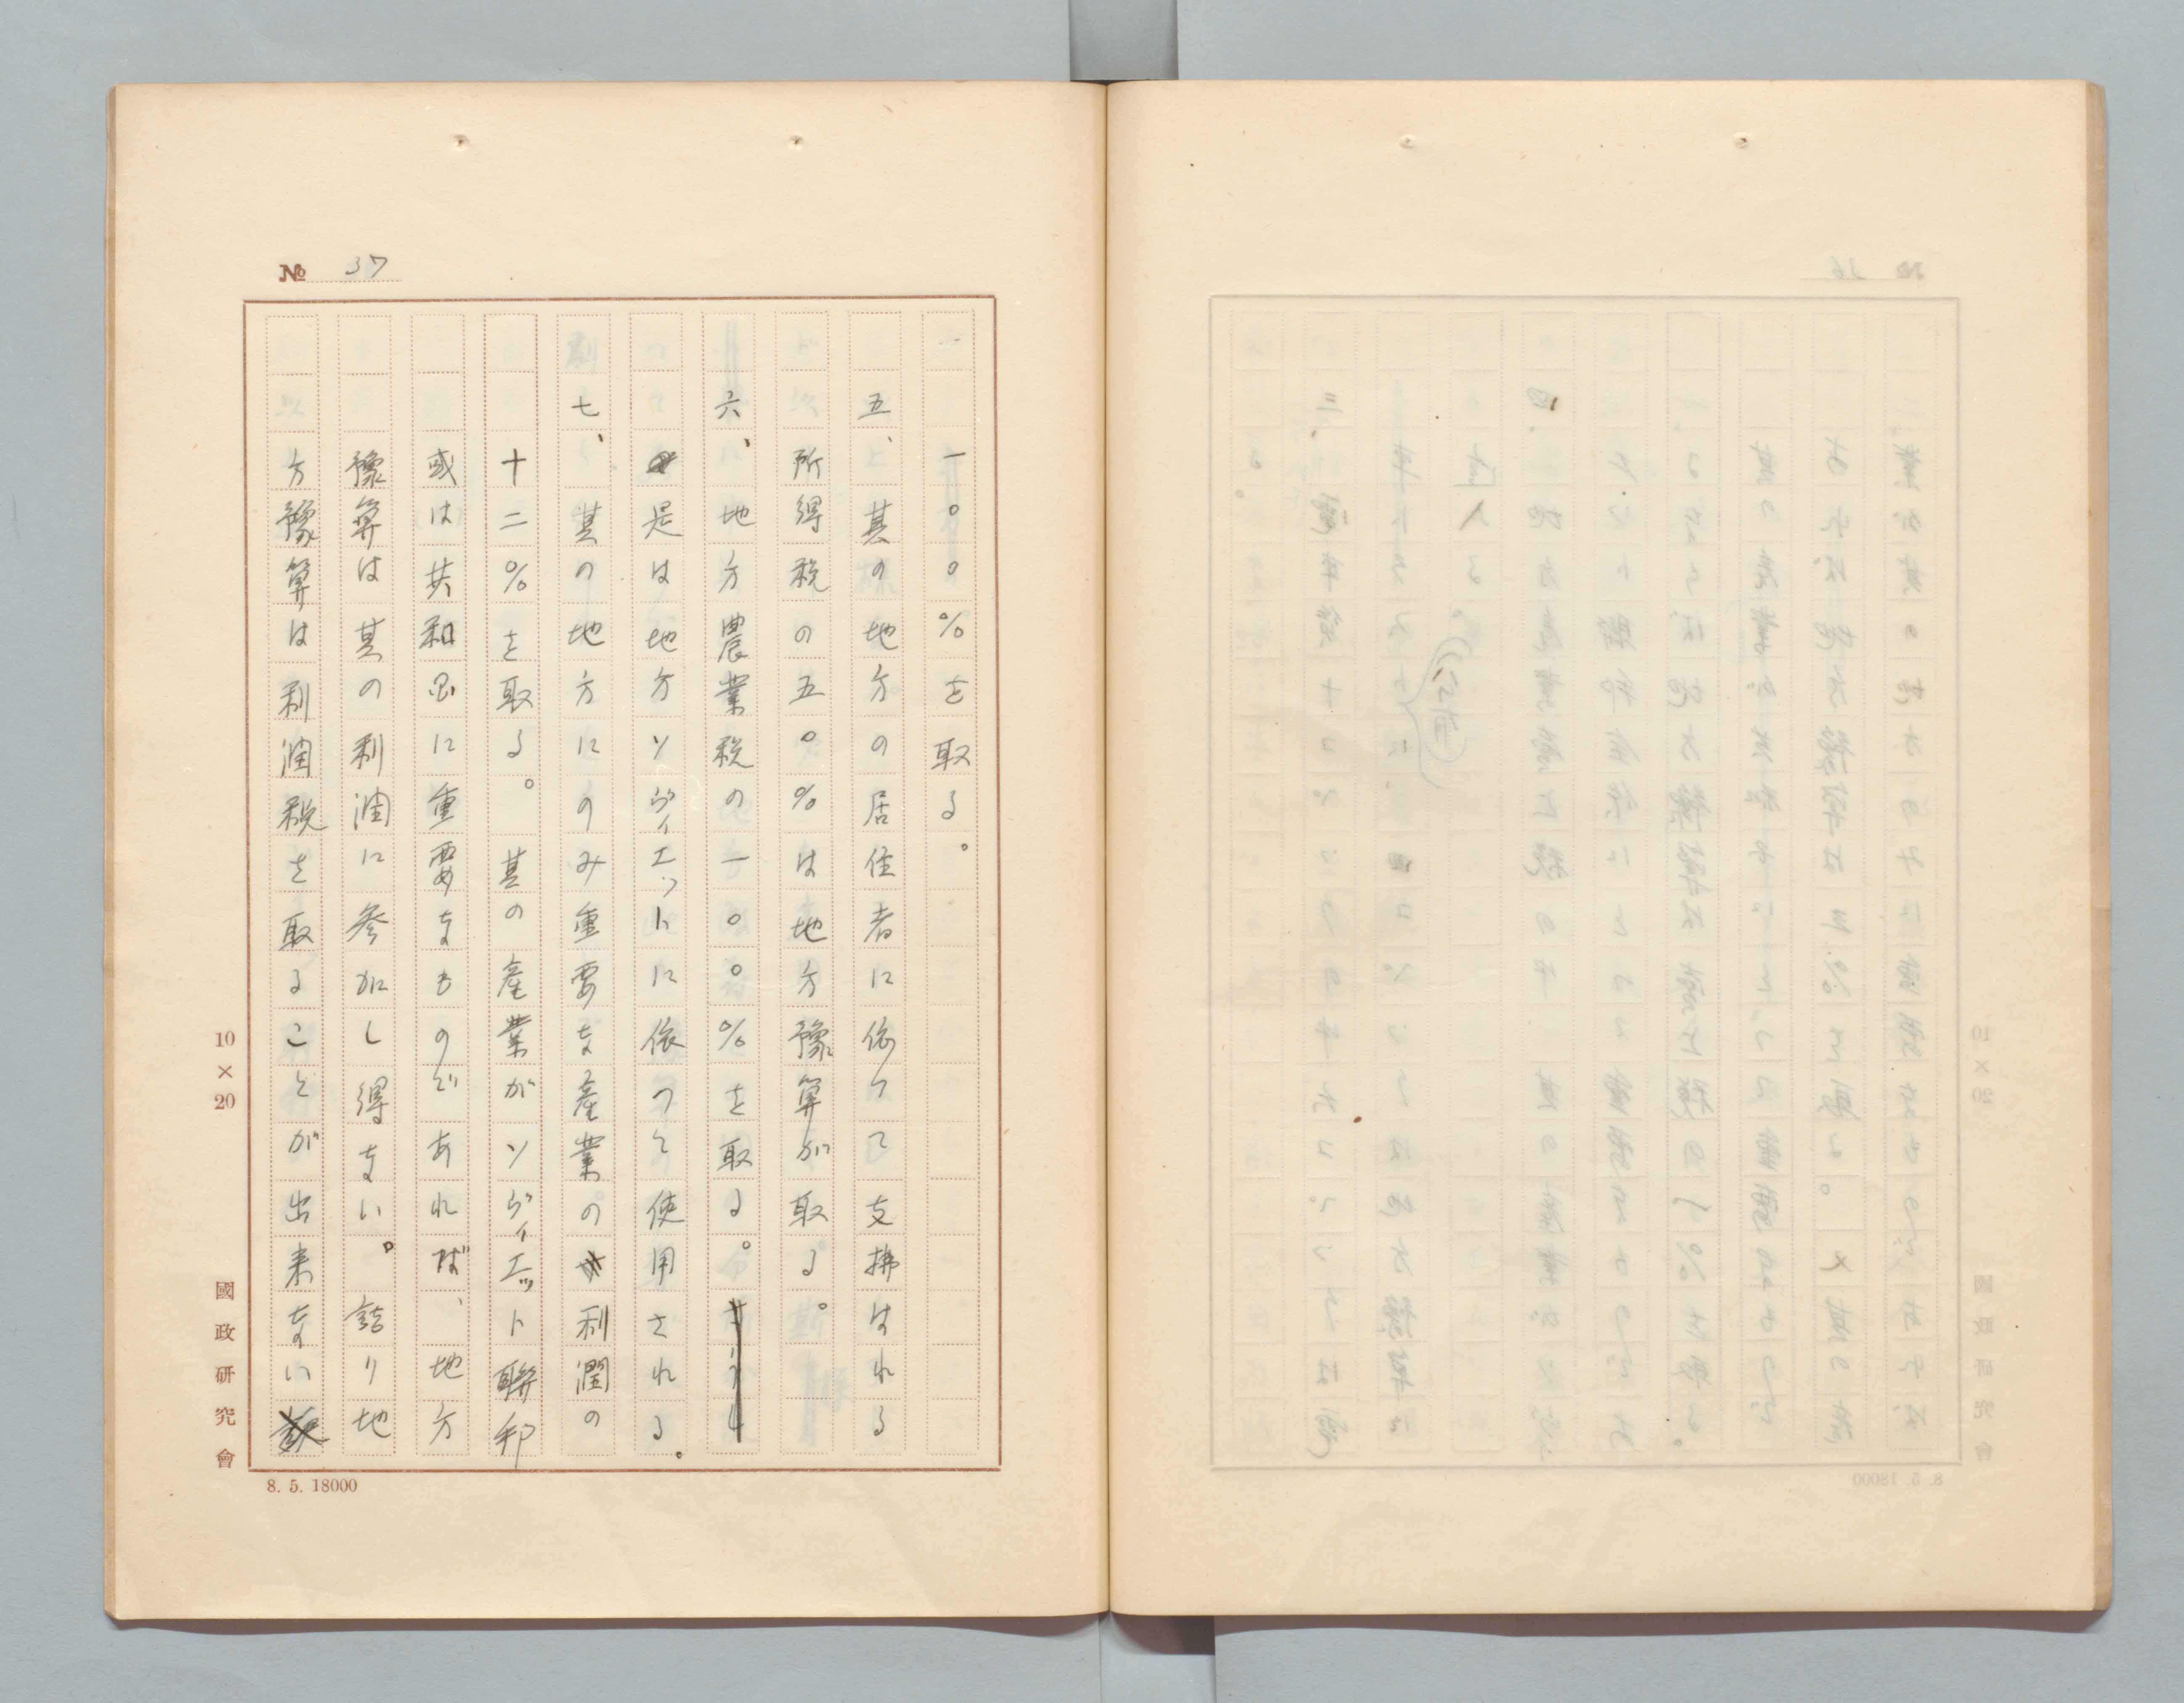 № 37
一〇〇%を取る。
五、其の地方の居住者に依つて支拂はれる
所得税の五〇%は地方豫算が取る。
六、地方農業税の一〇〇%を取る。
是は地方ソヴィエットに依つて使用される。
七、其の地方にのみ重要な産業の利潤の
十二%を取る。其の産業がソヴィエット聯邦
或は共和国に重要なものであれば、地方
豫算は其の利潤に参加し得ない。詰り地
方豫算は利潤税を取ることが出来ない
10×20
國政研究會
8. 5. 18000